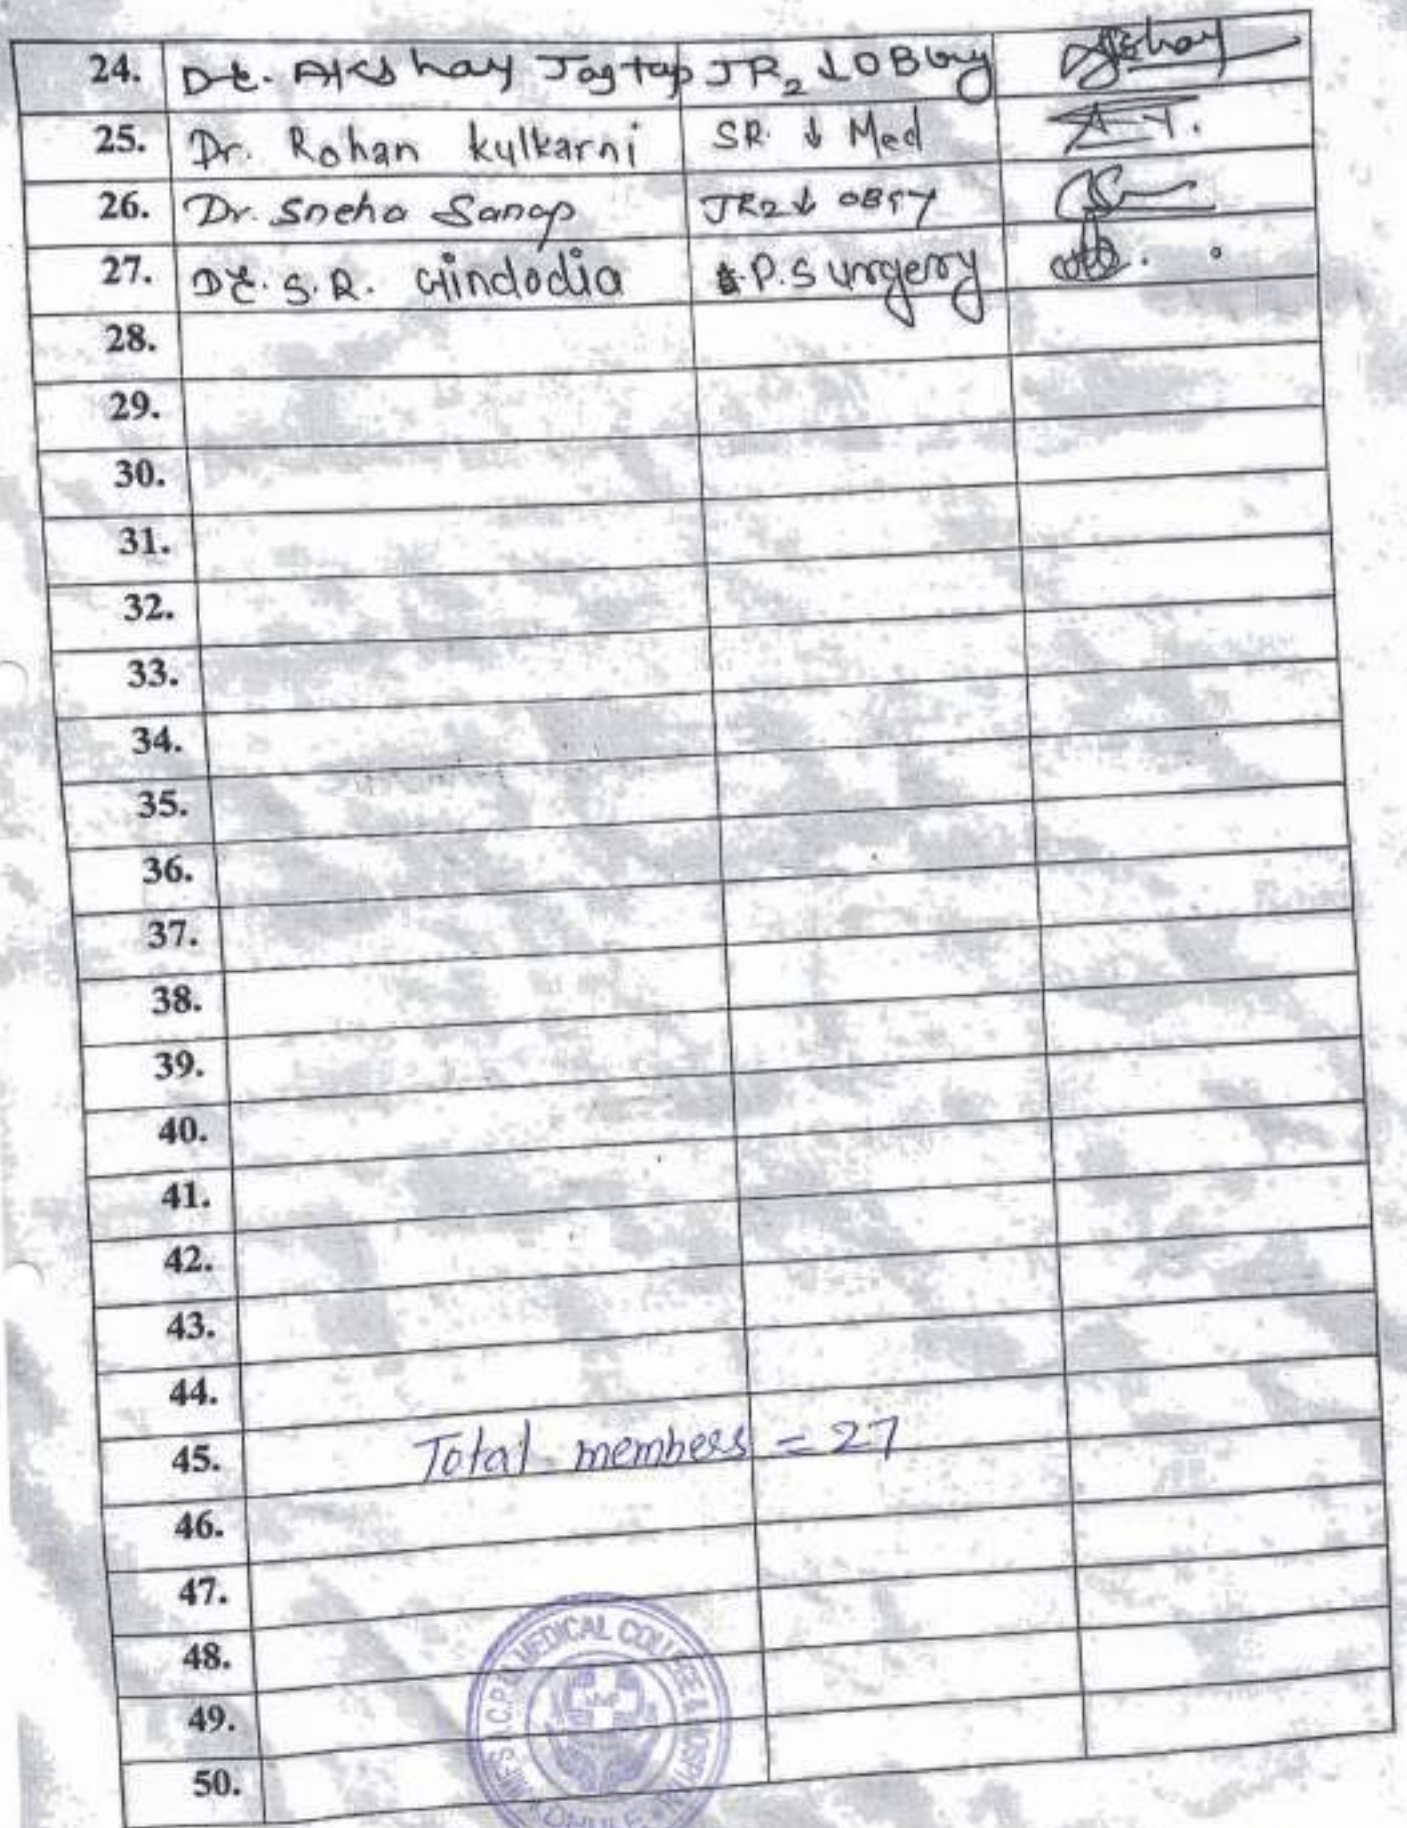 24. Dr. Akshay Jagtap JR2 ↓ OBGY Akshay
25. Dr. Rohan kulkarni SR ↓ Med
26. Dr. Sneha Sanap JR2 ↓ OBGY
27. Dr. S.R. Gindodia P. Surgery
28.
29.
30.
31.
32.
33.
34.
35.
36.
37.
38.
39.
40.
41.
42.
43.
44.
45. Total members = 27
46.
47.
48.
49.
50.
A.C.P.M. MEDICAL COLLEGE & HOSPITAL DHULE